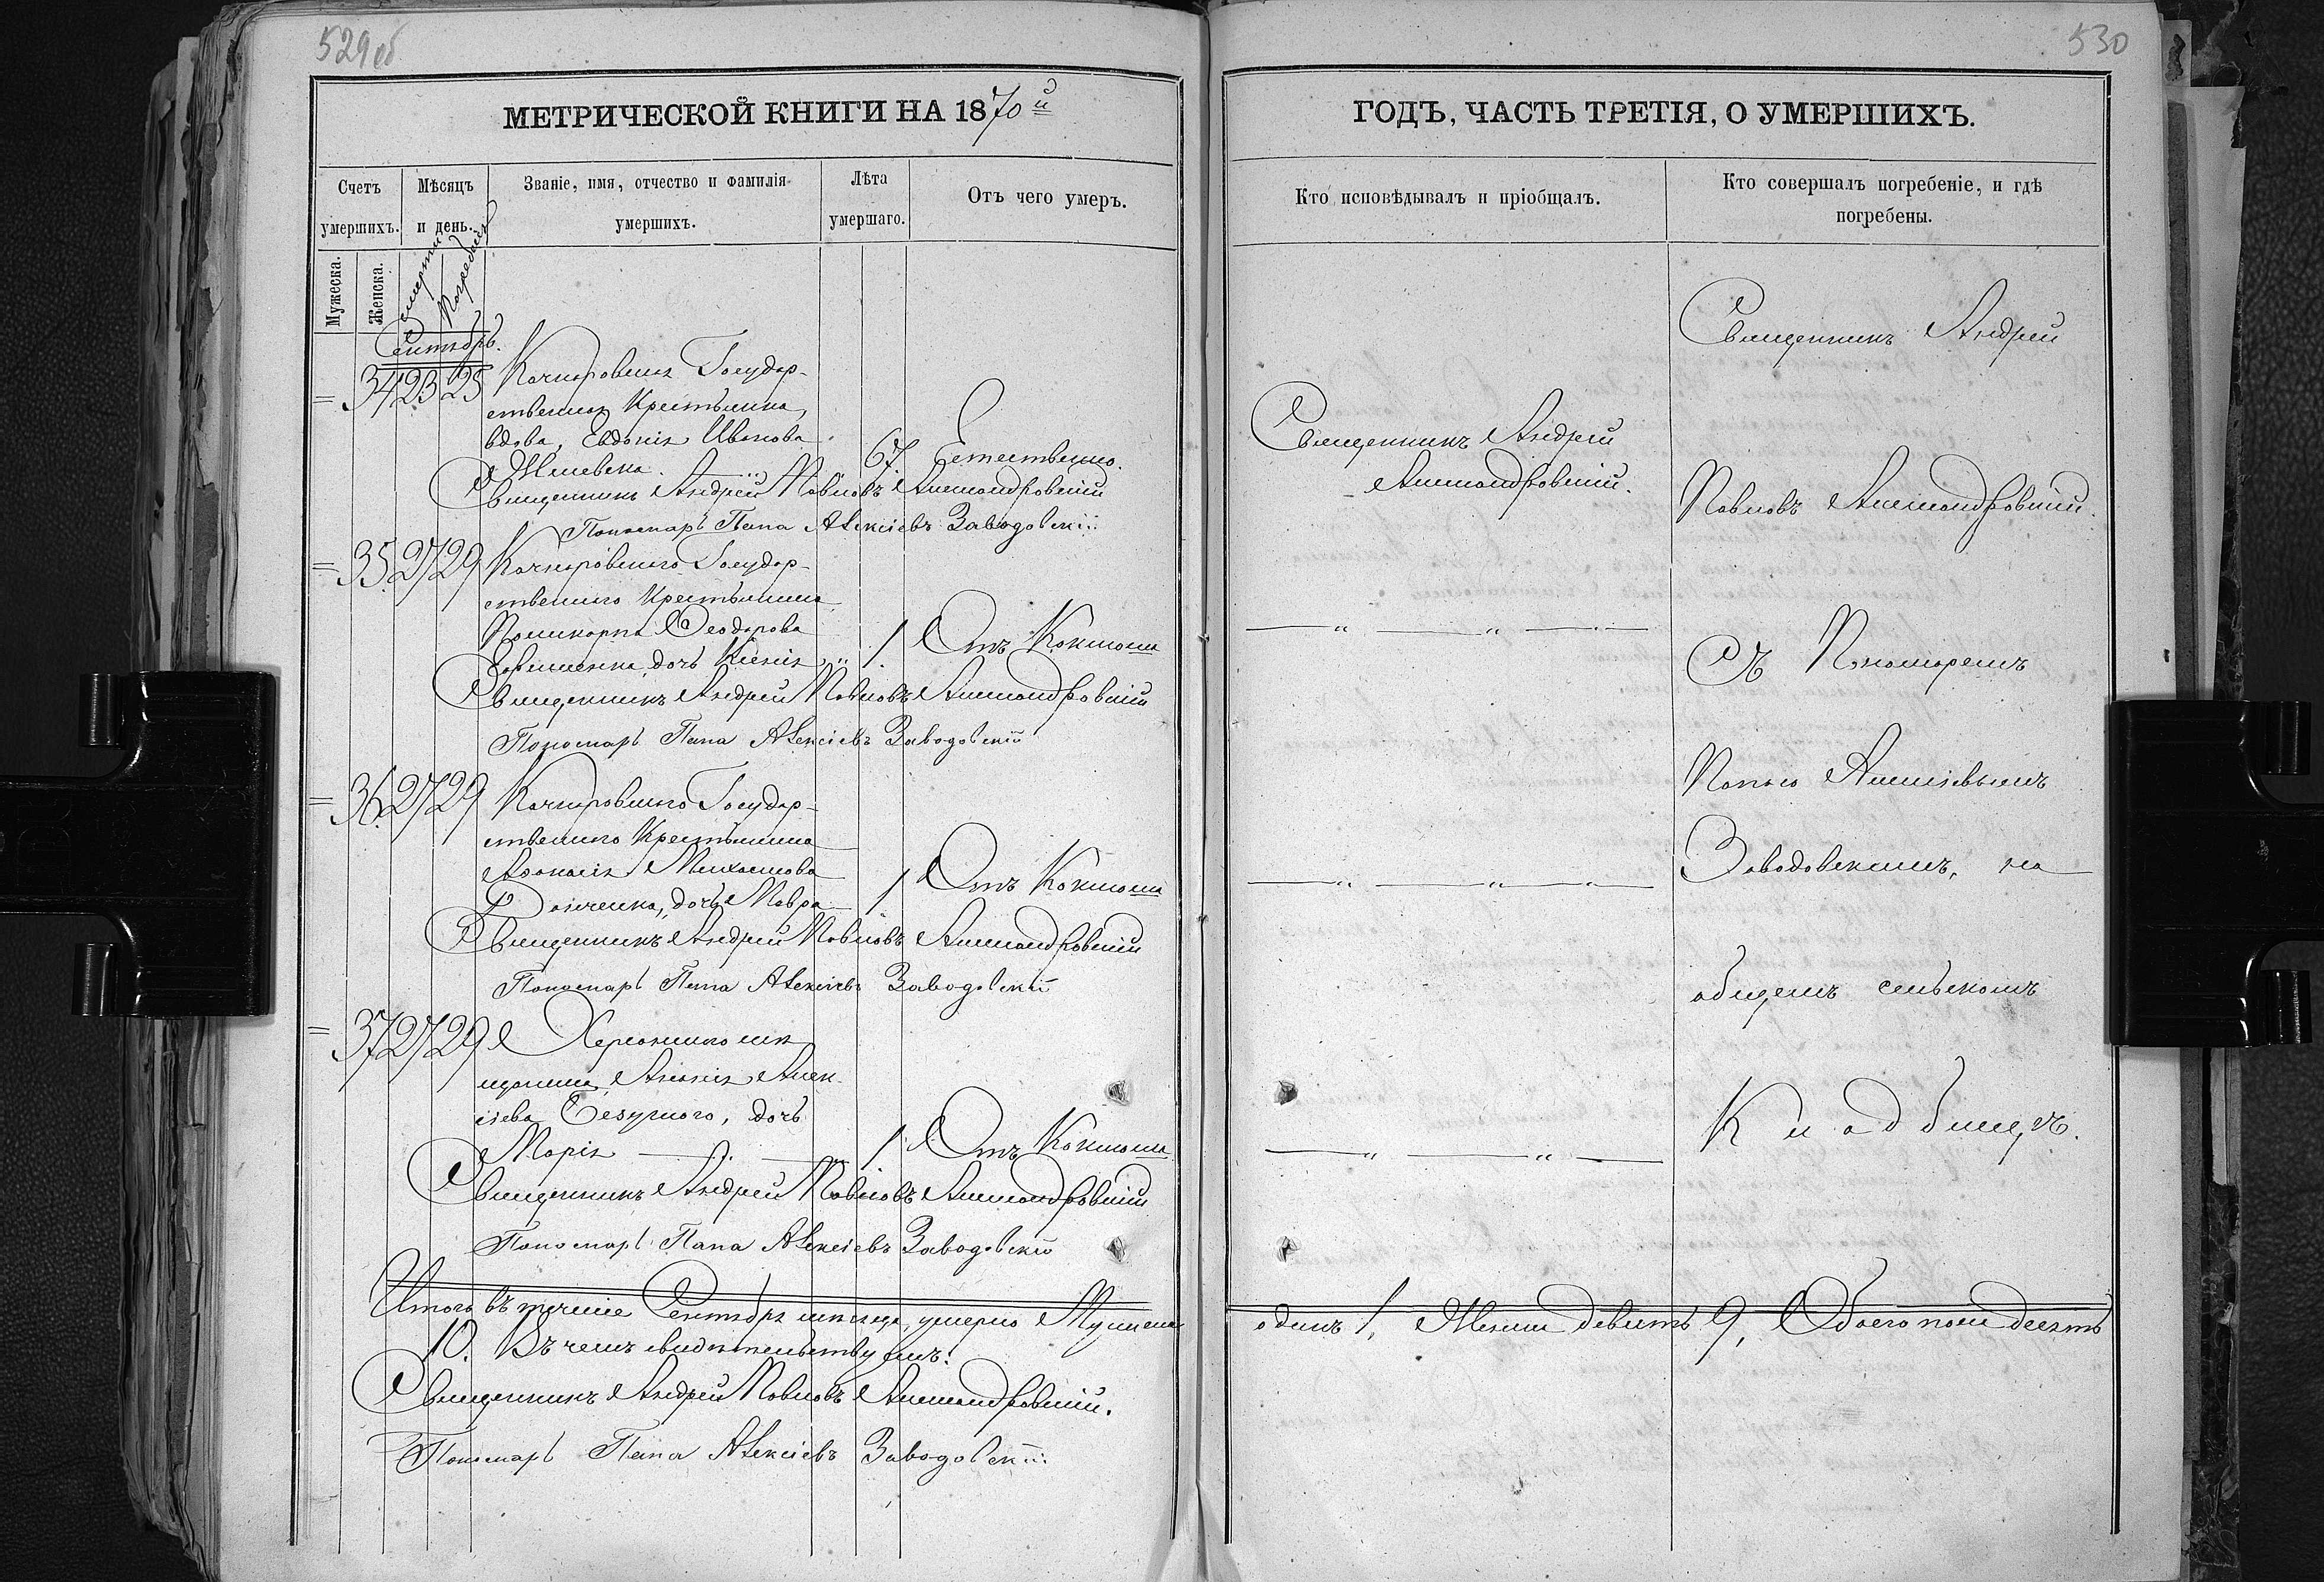 529об
МЕТРИЧЕСКОЙ КНИГИ НА 1870й
Счетъ умершихъ.
Мѣсяцъ и день.
Званіе, имя, отчество и фамилія умершихъ.
Лѣта умершаго.
Отъ чего умеръ.
Мужеска.
Женска.
смерти
погребенія
Сентябрь.
= 34 23 25 Качкаровская Государ-
ственная Крестьянка,
вдова, Евдокія Иванова
67. Естественно.
Священникъ Андрей Павловъ Александровскій
Пономарь Папа Алексіевъ Заводовскій
= 35. 27 29 Качкаровскаго Государ-
ственнаго Крестьянина
Поликарпа Ѳеодорова
дочь Ксенія „ 1. Отъ Коклюша
Священникъ Андрей Павловъ Александровскій
Пономарь Папа Алексіевъ Заводовскій
= 36. 27 29 Качкаровскаго Государ-
ственнаго Крестьянина
Аѳанасія Михаилова
дочь Мавра 1 Отъ Коклюша
Священникъ Андрей Павловъ Александровскій
Пономарь Папа Алексіевъ Заводовскій
= 37 27 29 Херсонскаго мѣ-
щанина Алек-
сіева Безуглаго, дочь
Марія 1. Отъ Коклюша
Священникъ Андрей Павловъ Александровскій
Пономарь Папа Алексіевъ Заводовскій
Итого въ теченіе Сентября мѣсяца умерло Мужеска
10. Въ чемъ свидѣтельствуемъ:
Священникъ Андрей Павловъ Александровскій.
Пономарь Папа Алексіевъ Заводовскій
530
ГОДЪ, ЧАСТЬ ТРЕТІЯ, О УМЕРШИХЪ.
Кто исповѣдывалъ и пріобщалъ.
Кто совершалъ погребеніе, и гдѣ погребены.
Священникъ Андрей
Александровскій.
— „ — „ —
— „ — „ —
— „ — „ —
Священникъ Андрей
Павловъ Александровскій.
Съ Пономаремъ
Папою Алексіевымъ
Заводовскимъ, на
общемъ сельскомъ
Кладбищѣ.
одинъ 1, Женска девять 9, Обоего пола десять